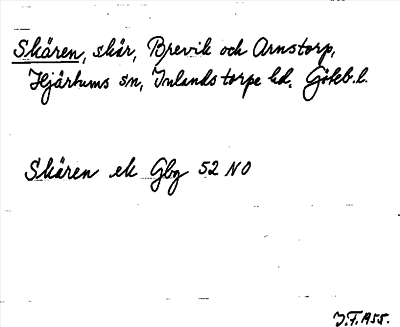 Skären, skär, Brevik och Arnstorp,
Hjärtums sn, Inlands torpe hd, Göteb. l.
Skären ek Gbg 52 NO
J.F. 1955.